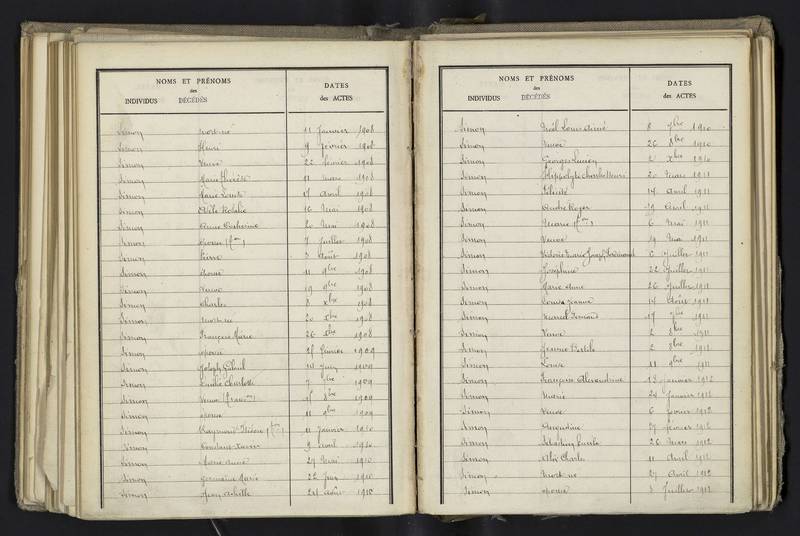 NOMS ET PRÉNOMS
des
INDIVIDUS DÉCÉDÉS
DATES
des ACTES
Simon mort-né 11 Janvier 1908
Simon Henri 9 février 1908
Simon Veuve 22 février 1908
Simon Marie Thérèse 11 mars 1908
Simon Marie Louise 17 Avril 1908
Simon Adèle Rosalie 16 Mai 1908
Simon Anne Catherine 20 Mai 1908
Simon 7 Juillet 1908
Simon Pierre 3 Août 1908
Simon 11 9bre 1908
Simon Veuve 19 9bre 1908
Simon Charles 8 Xbre 1908
Simon mort-né 20 Xbre 1908
Simon François Marie 26 Xbre 1908
Simon épouse février 1909
Simon Joseph 14 Juin 1909
Simon Emilie Charlotte 7 1909
Simon Veuve 8bre 1909
Simon épouse 11 9bre 1909
Simon Raymond 11 Janvier 1910
Simon 9 Avril 1910
Simon Marie 27 Mai 1910
Simon Germaine Marie 22 Juin 1910
Simon Jean Achille 24 Août 1910
NOMS ET PRÉNOMS
des
INDIVIDUS DÉCÉDÉS
DATES
des ACTES
Simon Noël Louis Aimé 8 7bre 1910
Simon Veuve 26 8bre 1910
Simon Georges Lucien 2 Xbre 1910
Simon Hippolyte Charles Henri 20 Mars 1911
Simon Félicité 14 Avril 1911
Simon André Roger 19 Avril 1911
Simon Marie 6 Mai 1911
Simon Veuve 19 Mai 1911
Simon Marie Ferdinand 6 Juillet 1911
Simon Joséphine 22 Juillet 1911
Simon Marie Anne 26 Juillet 1911
Simon Louise Jeanne 14 Août 1911
Simon Marcel 17 7bre 1911
Simon Veuve 2 8bre 1911
Simon Jeanne 2 8bre 1911
Simon Louise 11 9bre 1911
Simon Françoise Alexandrine 13 Janvier 1912
Simon Marie 24 Janvier 1912
Simon Veuve 6 février 1912
Simon 27 février 1912
Simon Sébastien 26 Mars 1912
Simon Charles 11 Avril 1912
Simon Mort-né 27 Avril 1912
Simon épouse 3 Juillet 1912